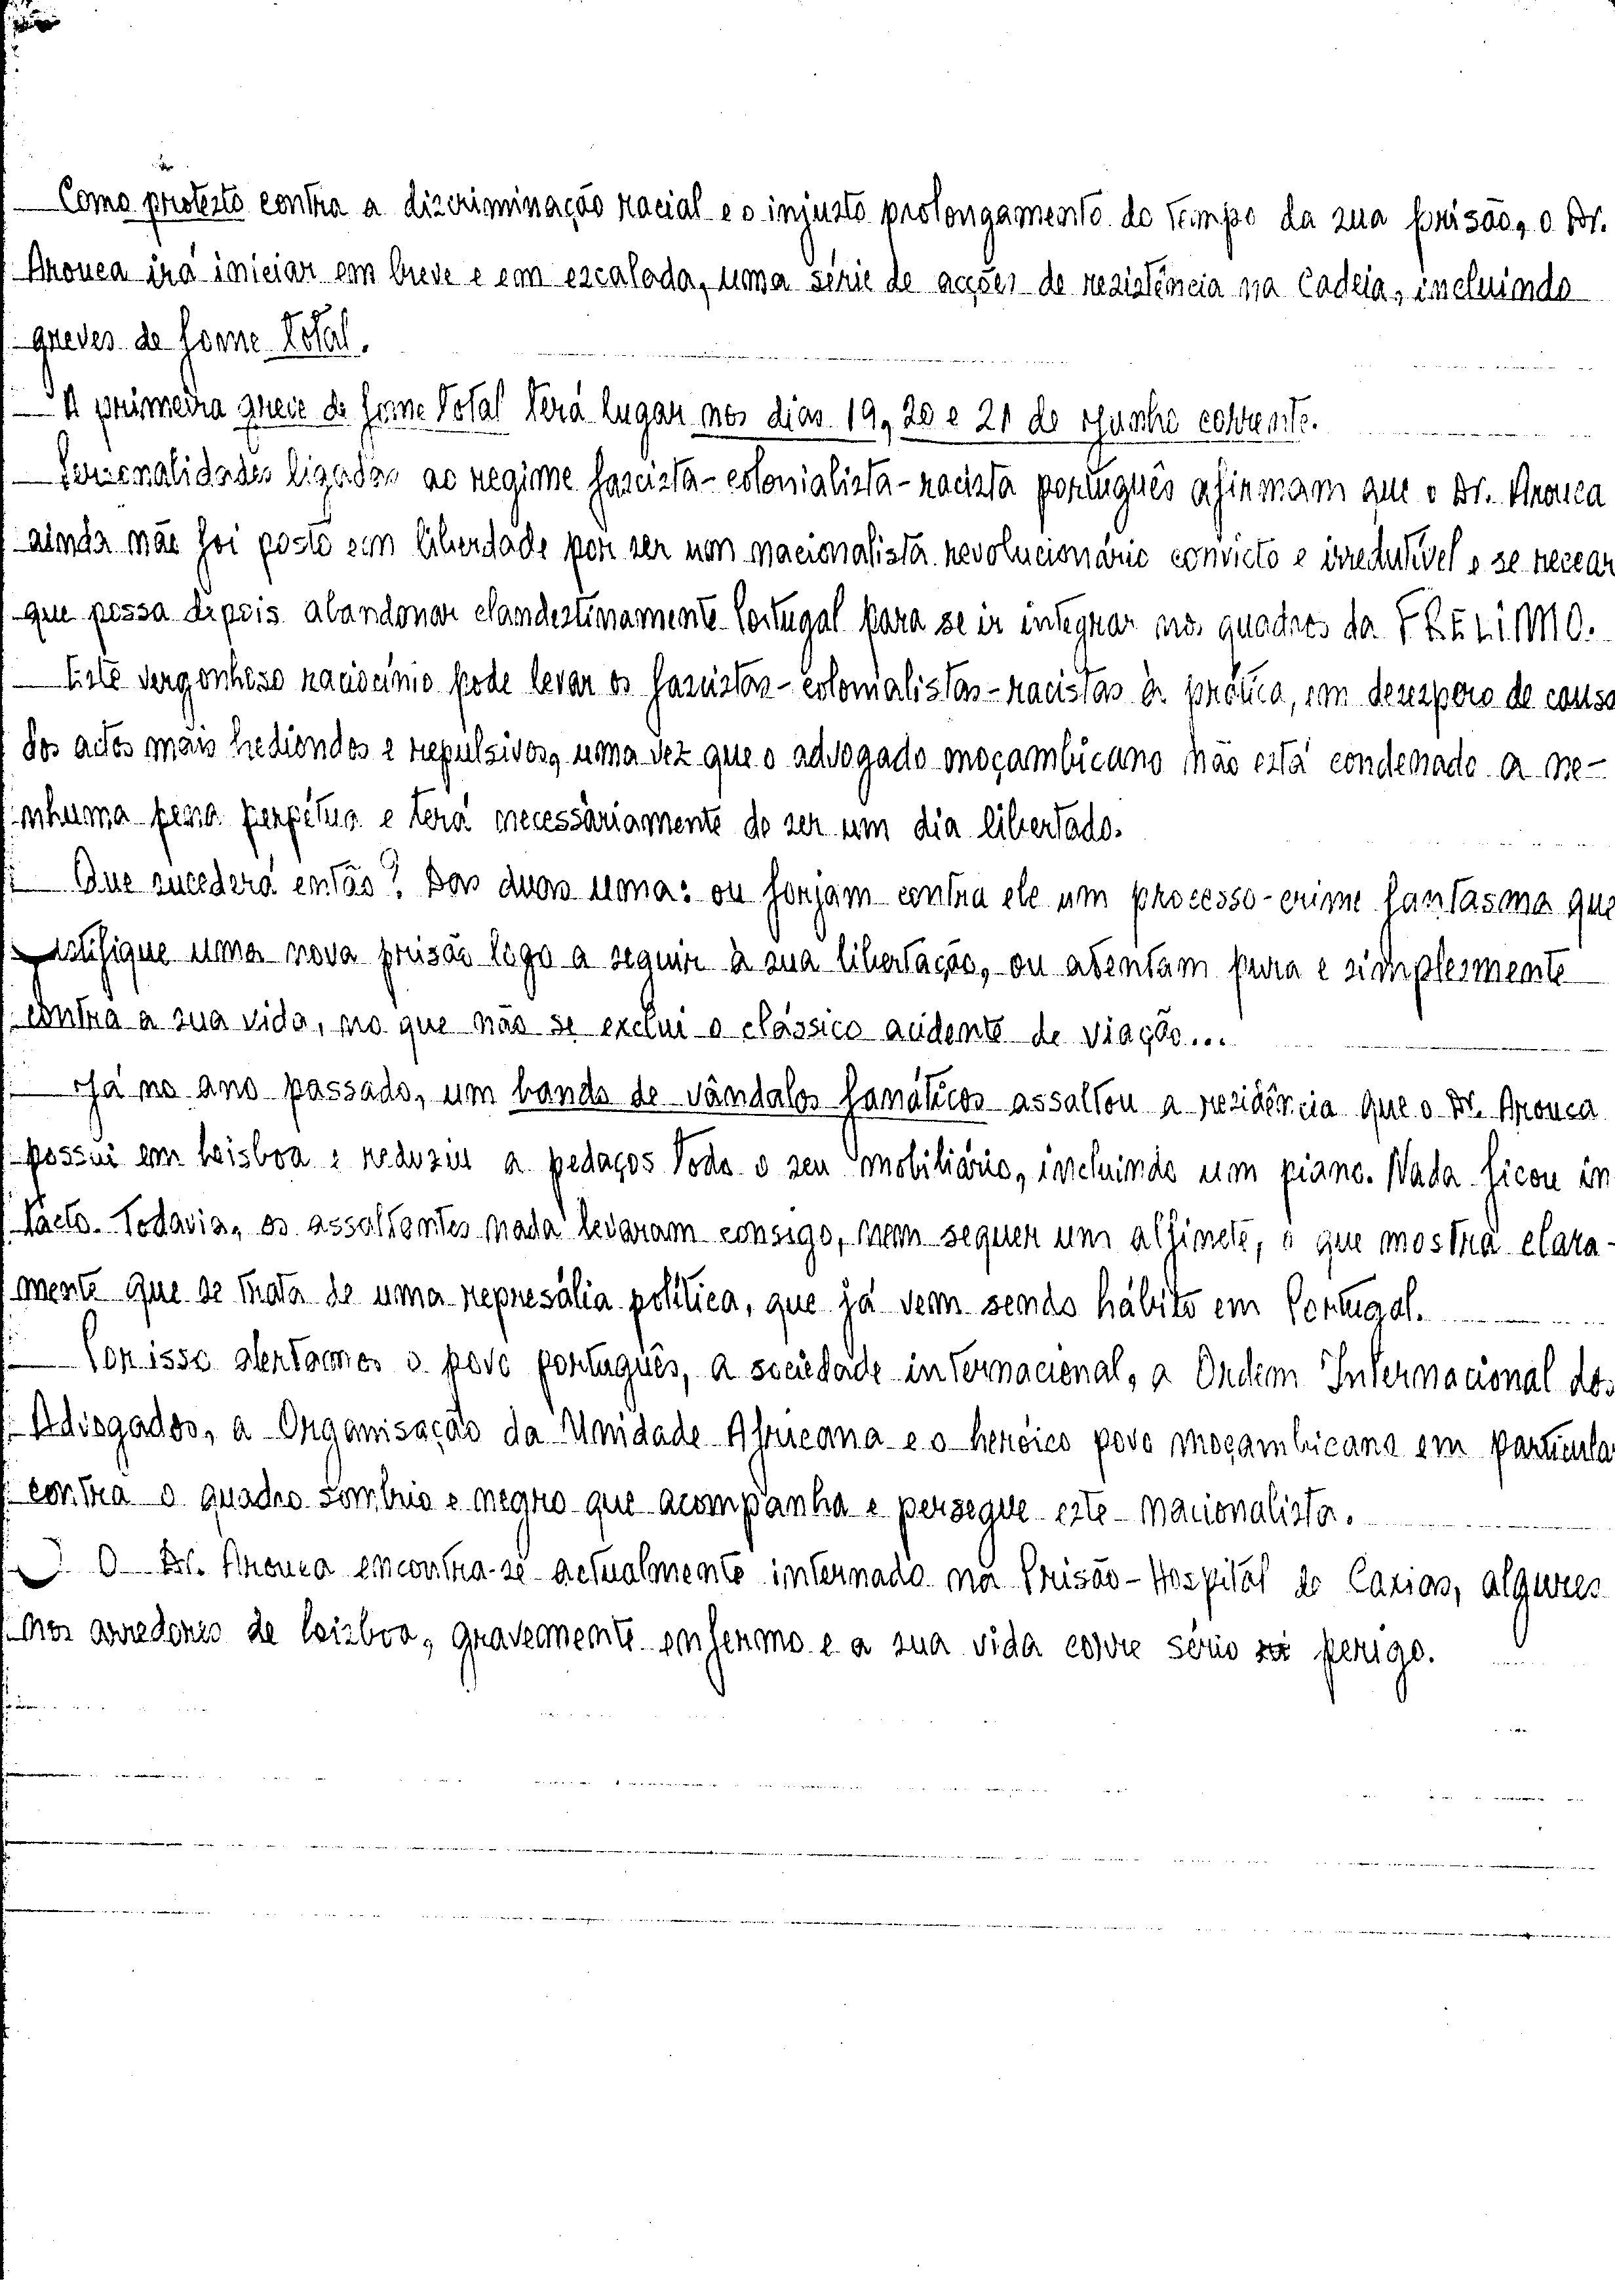 Como protesto contra a discriminação racial e o injusto prolongamento do tempo da sua prisão, o Dr.
Arouca irá iniciar em breve e em escalada, uma série de acções de resistência na Cadeia, incluindo
greves de fome total.
A primeira greve de fome total terá lugar nos dias 19, 20 e 21 de Junho corrente.
Personalidades ligadas ao regime fascista-colonialista-racista português afirmam que o Dr. Arouca
ainda não foi posto em liberdade por ser um nacionalista revolucionário convicto e irredutível e se recear
que possa depois abandonar clandestinamente Portugal para se ir integrar nos quadros da FRELIMO.
Este vergonhoso raciocínio pode levar os fascistas-colonialistas-racistas à prática, em desespero de causa
dos actos mais hediondos e repulsivos, uma vez que o advogado moçambicano não está condenado a ne-
nhuma pena perpétua e terá necessàriamente de ser um dia libertado.
Que sucederá então? Das duas uma: ou forjam contra ele um processo-crime fantasma que
justifique uma nova prisão logo a seguir à sua libertação, ou atentam pura e simplesmente
contra a sua vida, no que não se exclui o clássico acidente de viação...
Já no ano passado, um bando de vândalos fanáticos assaltou a residência que o Dr. Arouca
possui em Lisboa e reduziu a pedaços todo o seu mobiliário, incluindo um piano. Nada ficou in
tacto. Todavia, os assaltantes nada levaram consigo, nem sequer um alfinete, o que mostra clara-
mente que se trata de uma represália política, que já vem sendo hábito em Portugal.
Por isso alertamos o povo português, a sociedade internacional, a Ordem Internacional dos
Advogados, a Organisação da Unidade Africana e o heróico povo moçambicano em particular
contra o quadro sombrio e negro que acompanha e persegue este nacionalista.
O Dr. Arouca encontra-se actualmente internado na Prisão-Hospital de Caxias, algures
nos arredores de Lisboa, gravemente enfermo e a sua vida corre sério perigo.